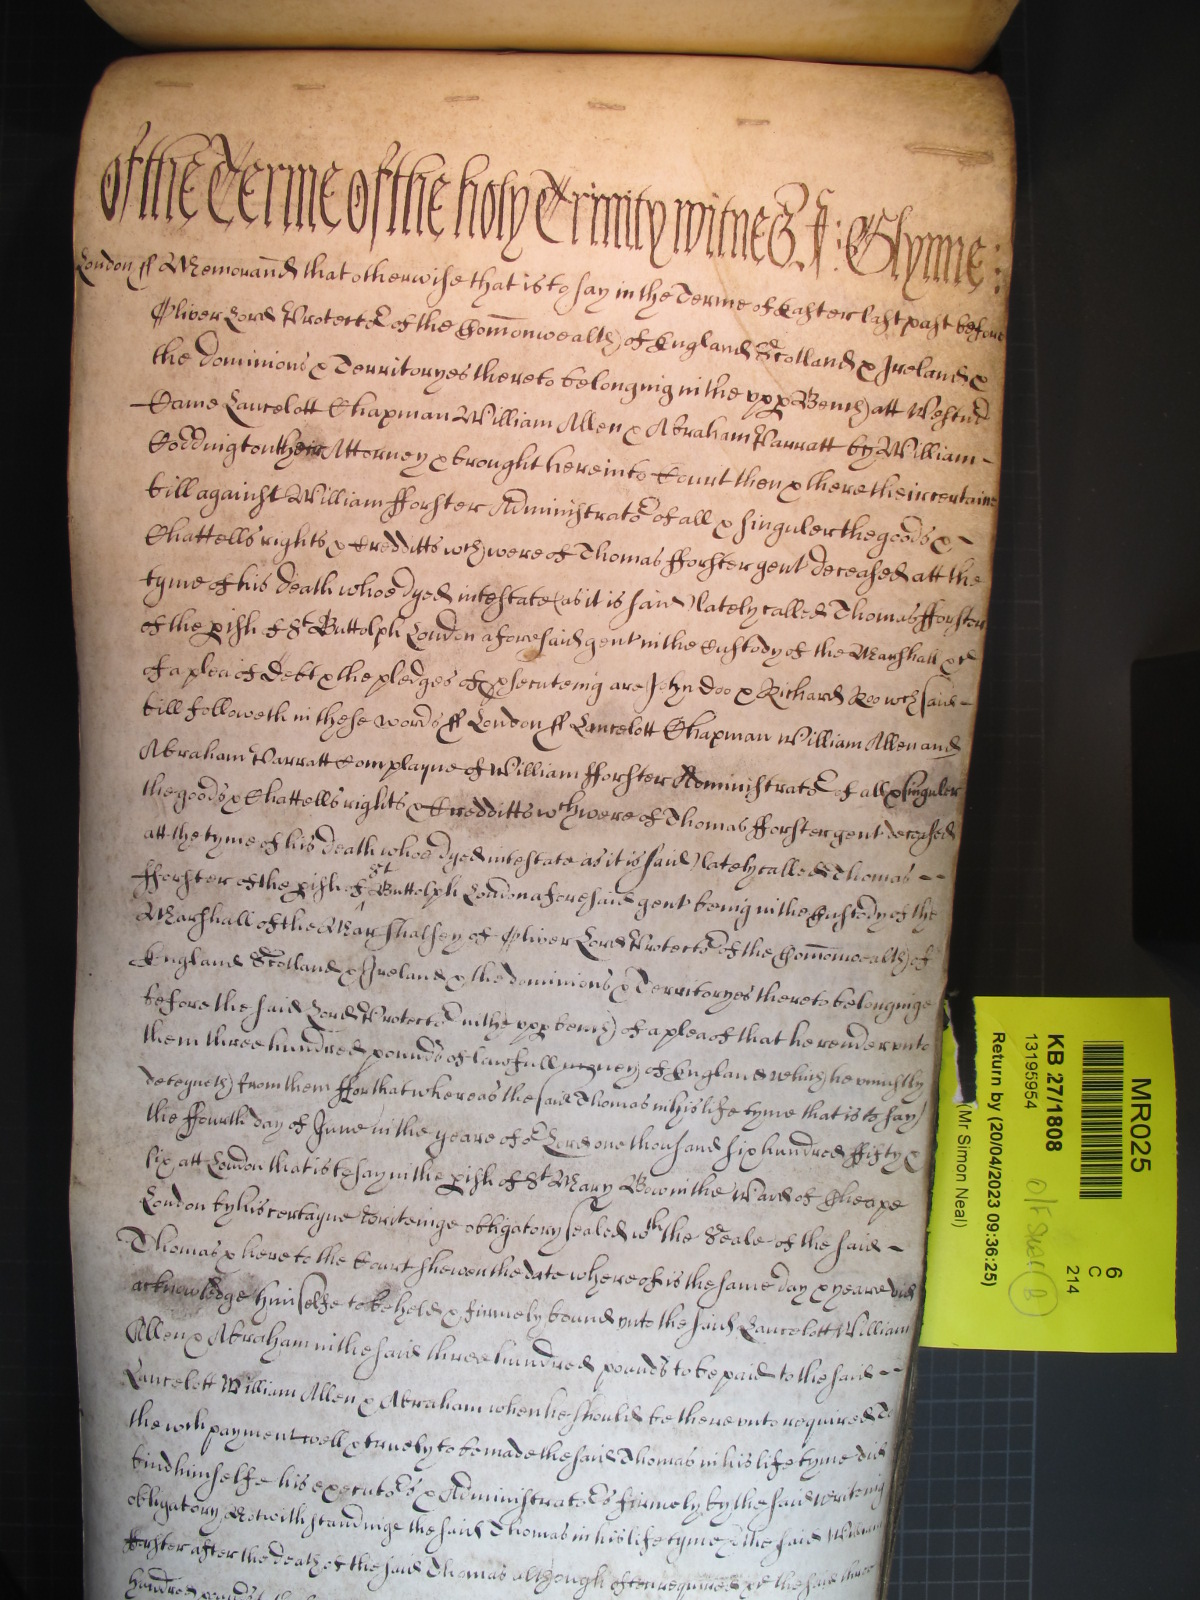 Of the Terme of the holy Trinity witnes J: Glynne:
London ss Memorand that otherwise that is to say in the Terme of Easter last past before
Oliver Lord Protector of the Comonwealth of England Scotland & Ireland &
the dominions & Territoryes thereto belonging in the upp Bench att Westmr
Came Lancelott Chapman William Allen & Abraham Parratt by William
Coddington their Attorney & brought here into Court then & there their certaine
bill against William fforster Administrator of all & singuler the goods &
Chattells rights & Credditts wch were of Thomas fforster gent deceased att the
tyme of his death whoe dyed intestate (as it is said) lately called Thomas fforster
of the pish of St Buttolph London aforesaid gent in the Custody of the Marshall &c
of a plea of Debt & the pledges of psecuteing are John Doo & Richard Roo wch said
bill followeth in these words ss London ss Lancelott Chapman William Allen and
Abraham Parratt Complayne of William fforster Administrator of all & singuler
the goods & Chattells rights & Credditts wch were of Thomas fforster gent deceased
att the tyme of his death whoe dyed intestate as it is said) lately called Thomas
fforster of the pish of St Buttolph London aforesaid gent being in the Custody of the
Marshall of the Marshalsey of Oliver Lord Protector of the Comonwealth of
England Scotland & Ireland & the dominions & Territoryes thereto belonginge
before the said Lord Protector in the upp bench of a plea of that he render unto
them three hundred pounds of lawfull money of England which he uniustly
deteyneth from them ffor that whereas the said Thomas in his life tyme that is to say
the ffourth day of June in the yeare of or Lord one thousand six hundred ffifty &
six att London that is to say in the pish of St Mary Bow in the Ward of Cheape
London by his certayne writeinge obligatory sealed wth the Seale of the said
Thomas & here to the Court shewen the date whereof is the same day & yeare did
acknowledge himselfe to be held & firmely bound unto the said Lancelott William
Allen & Abraham in the said three hundred pounds to be paid to the said
Lancelott William Allen & Abraham when he should be thereunto required To
the wch payment well & truely to be made the said Thomas in his life tyme did
bind himselfe his executors & Administrators firmely by the said writeing
obligatory Notwithstandinge the said Thomas in his life tyme & the said William
fforster after the death of the said Thomas although often required &c the said three
hundred pounds
MR025
6
C
214
KB 27/1808
13195954
O/F Shelf B
Return by (20/04/2023 09:36:25)
(Mr Simon Neal)